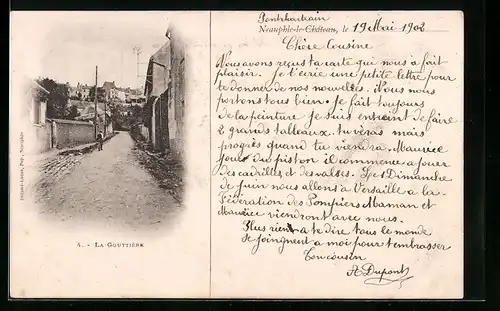 Pontchartrain
Neauphle-le-Château, le 19 Mai 1902
Chère Cousine
Nous avons reçus ta carte qui nous à fait
plaisir. Je t'ecrie une petite lettre pour
te donner de nos nouvelles. Nous nous
portons tous bien. Je fait toujours
de la peinture je suis entrent de faire
2 grands tableaux. tu veras mais
progrès quand tu viendra. Maurice
joue du piston il commence a jouer
des cadrilles et des valses. Le 1 Dimanche
de juin nous allons a Versaille a la
Féderation des Pompiers Maman et
Maurice viendront avec nous.
Plus rien a te dire tous le monde
se joingnent a moi pour t'embrasser
Ton cousin
A Dupont
4. - LA GOUTTIÈRE